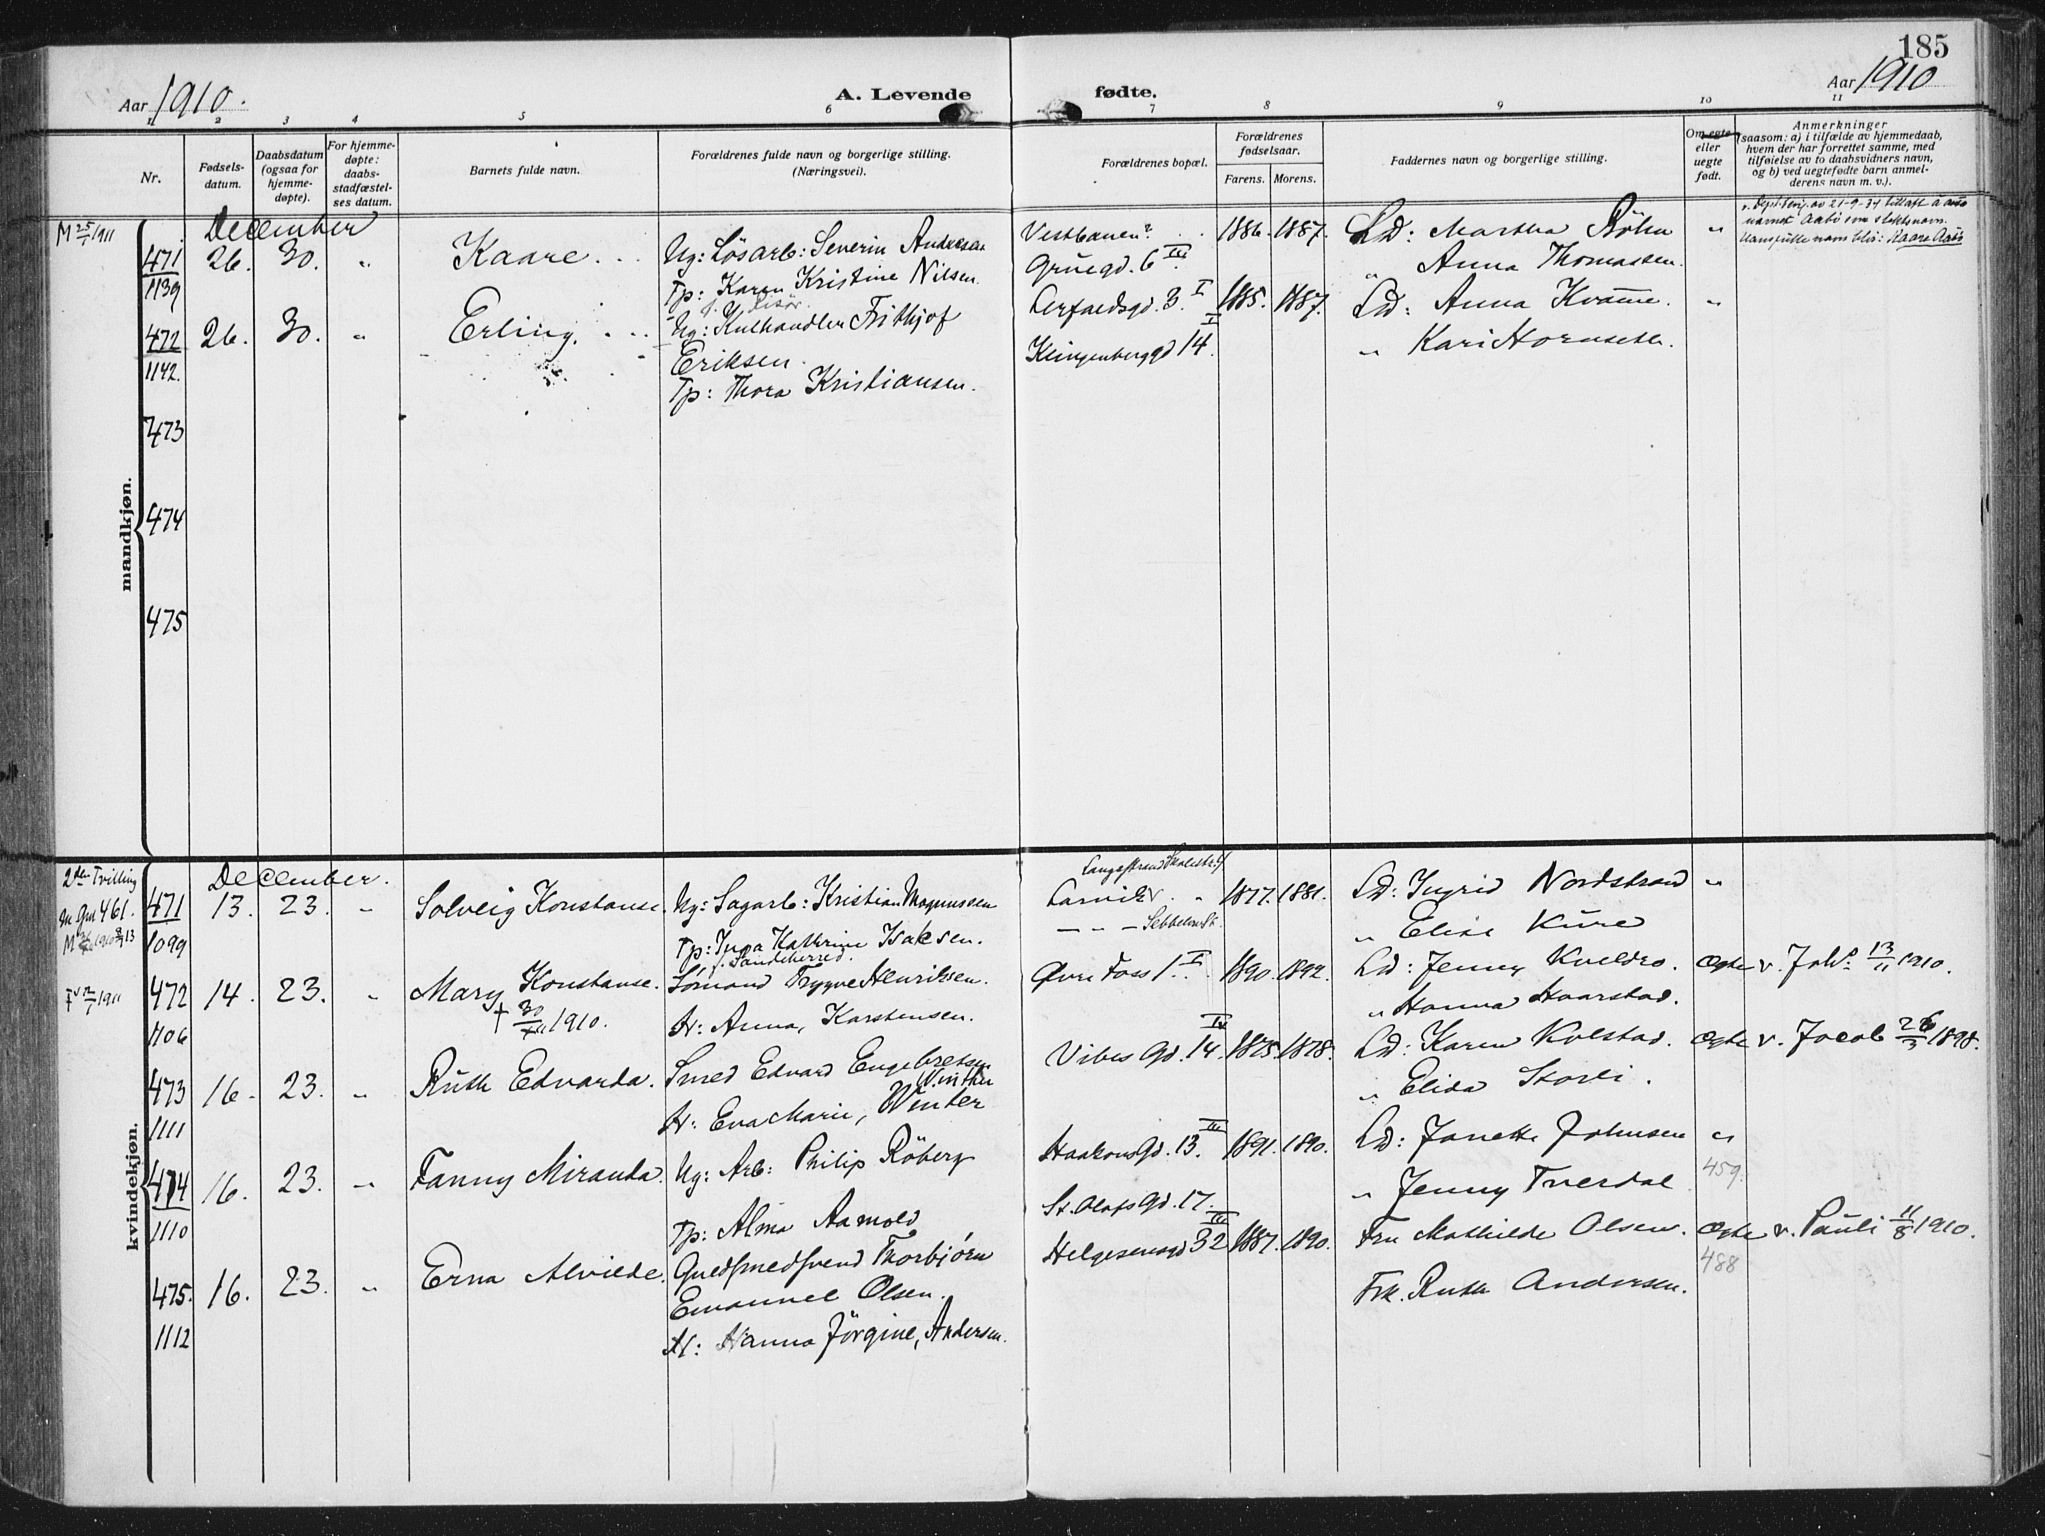 185
Aar 1910.
A. Levende
fødte.
Aar 1910
1 2 3 4 5 6 7 8 9 10 11
Nr.
Fødsels-
datum.
Daabsdatum
(ogsaa for
hjemme-
døpte).
For hjemme-
døpte:
daabs-
stadfæstel-
ses datum.
Barnets fulde navn.
Forældrenes fulde navn og borgerlige stilling.
(Næringsvei).
Forældrenes bopæl.
Forældrenes
fødselsaar.
Farens. Morens.
Faddernes navn og borgerlige stilling.
Om egte
eller
uegte
født.
Anmerkninger
(saasom: a) i tilfælde av hjemmedaab,
hvem der har forrettet samme, med
tilføielse av to daabsvidners navn,
og b) ved uegtefødte barn anmel-
derens navn m. v.).
mandkjøn.
M 25/1 1911
December
471
1139
26. 30. "
Kaare
Ug: Lösarb: Severin Andersen
Tp: Karen Kristine Nilsen
Vestbanen?
Gruegd. 6 III
1886. 1887.
Ld: Martha Röhn
" Anna Thomassen.
"
av 21-9-34 till. at å anta
navnet Aabö som slektsnavn.
Hans fulle navn blir: Kaare Aabö
472
1142.
26. 30. "
Erling.
Ug: Kulhandler Frithjof
Eriksen.
Tp: Thora Kristiansen.
3. I
Klingenberggd 14. I
1885. 1887.
Ld: Anna Kvamme.
" Kari
"
473
474
475
kvindekjøn.
2den Tvilling
461.
December.
471
1099
13. 23. "
Solveig Konstanse.
Ug: Sagarb: Kristian Magnussen
Tp: Inga Kathrine Isaksen.
f. Sandeherred.
Langestrand
Larvik
1877. 1881.
Ld: Ingrid Nordstrand
" Elise Kure
"
1911
472
1106
14. 23. "
Mary Konstanse.
† 30/XII 1910.
Sömand Trygve Henriksen.
H: Anna, Karstensen.
Övre Foss 1. I
1890. 1892.
Ld: Jenny Kveldro.
" Hanna Haarstad.
Ægte v. Johs 13/11 1910.
473
1111
16. 23. "
Ruth Edvarda.
Smed Edvard Engebretsen
Winther
H: Eva Marie, Winter
Vibes Gd. 14. IV
1875. 1878.
Ld: Karen Kolstad.
" Elida Storli.
Ægte v. Jacob 26/3 1898.
474
1110
16. 23. "
Fanny Miranda.
Ug: Arb: Philip Röberg
Tp: Alma Aamold
Haakonsgd. 13. III
St. Olafs Gd. 17.
1891. 1890.
Ld: Janette Johnsen
" Jenny Tverdal
"
459.
475.
1112
16. 23. "
Erna Alvilde.
Guldsmedsvend Thorbjörn
Emanuel Olsen.
H: Hanna Jörgine, Andersen.
Helgesensgd 32 III
1887. 1890.
Fru Mathilde Olsen.
Frk. Ruth Andersen.
Ægte v. Pauli 11/8 1910.
488